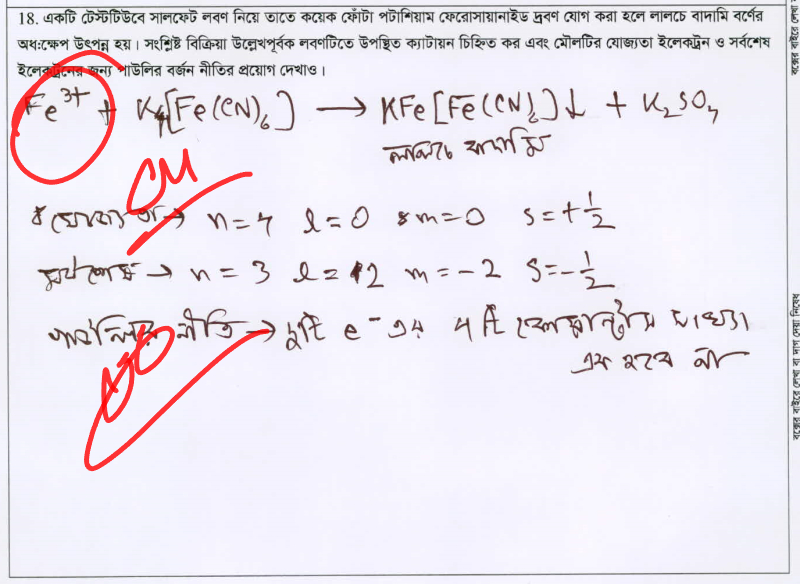 18. একটি টেস্টটিউবে সালফেট লবণ নিয়ে তাতে কয়েক ফোঁটা পটাশিয়াম ফেরোসায়ানাইড দ্রবণ যোগ করা হলে লালচে বাদামি বর্ণের
অধঃক্ষেপ উৎপন্ন হয়। সংশ্লিষ্ট বিক্রিয়া উল্লেখপূর্বক লবণটিতে উপস্থিত ক্যাটায়ন চিহ্নিত কর এবং মৌলটির যোজ্যতা ইলেকট্রন ও সর্বশেষ
ইলেকট্রনের জন্য পাউলির বর্জন নীতির প্রয়োগ দেখাও।
Fe³⁺ + K₄[Fe(CN)₆] → KFe[Fe(CN)₆]↓ + K₂SO₄
লালচে বাদামি
→ n=4 l=0 m=0 s=+½
সর্বশেষ → n=3 l=2 m=-2 s=-½
নীতি → দুটি e⁻ এর 4 টি কোয়ান্টাম সংখ্যা
এক হবে না
বক্সের বাইরে লেখা বা দাগ দেয়া নিষেধ